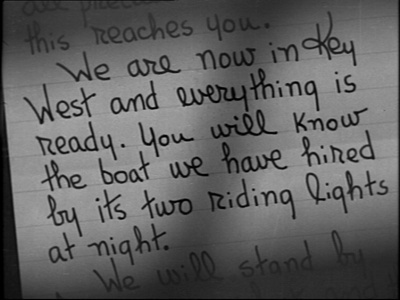 this reaches you.
We are now in Key
West and everything is
ready. You will know
the boat we have hired
by its two riding lights
at night.
We will stand by